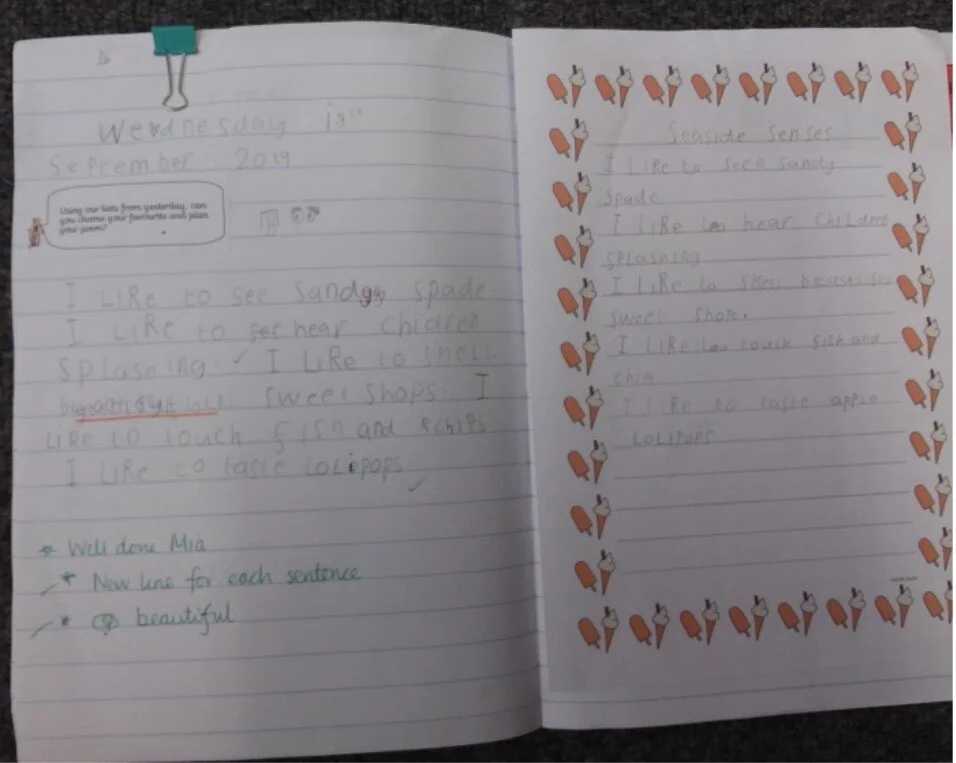 Wednesday
September 2019
Using our lists from yesterday, can
you choose your favourite and plan
your poem?
I LIRe to see Sandy spade.
I LIRe to see hear Chidren
Splashing. I LIRe to smell
sweet shops. I
LIRe to touch fish and chips
I LIRe to taste Lolipops
* Well done Mia
* New line for each sentence
* beautiful
Seaside Senses
I LIRe to see a sandy
Spade
I LIRe to hear Children
Splashing
I LIRe to beautiful
sweet shops.
I LIRe to touch fish and
I LIRe to taste apple
Lolipops